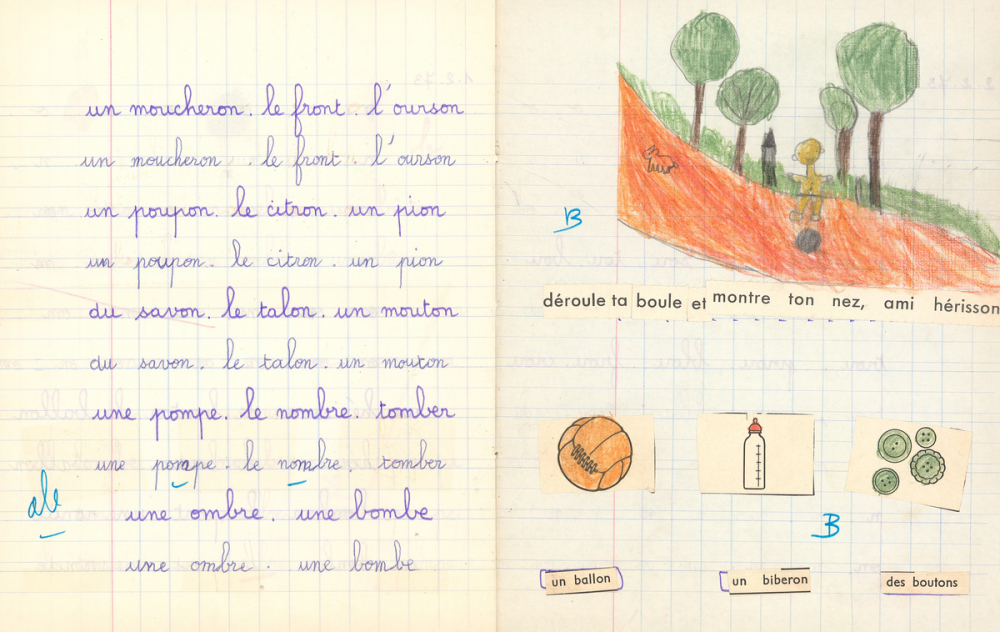 un moucheron. le front. l'ourson
un moucheron. le front. l'ourson
un poupon. le citron. un pion
un poupon. le citron. un pion
du savon. le talon. un mouton
du savon. le talon. un mouton
une pompe. le nombre. tomber
une pompe. le nombre. tomber
une ombre. une bombe
une ombre. une bombe
B
déroule ta boule et montre ton nez, ami hérisson
B
un ballon
un biberon
des boutons